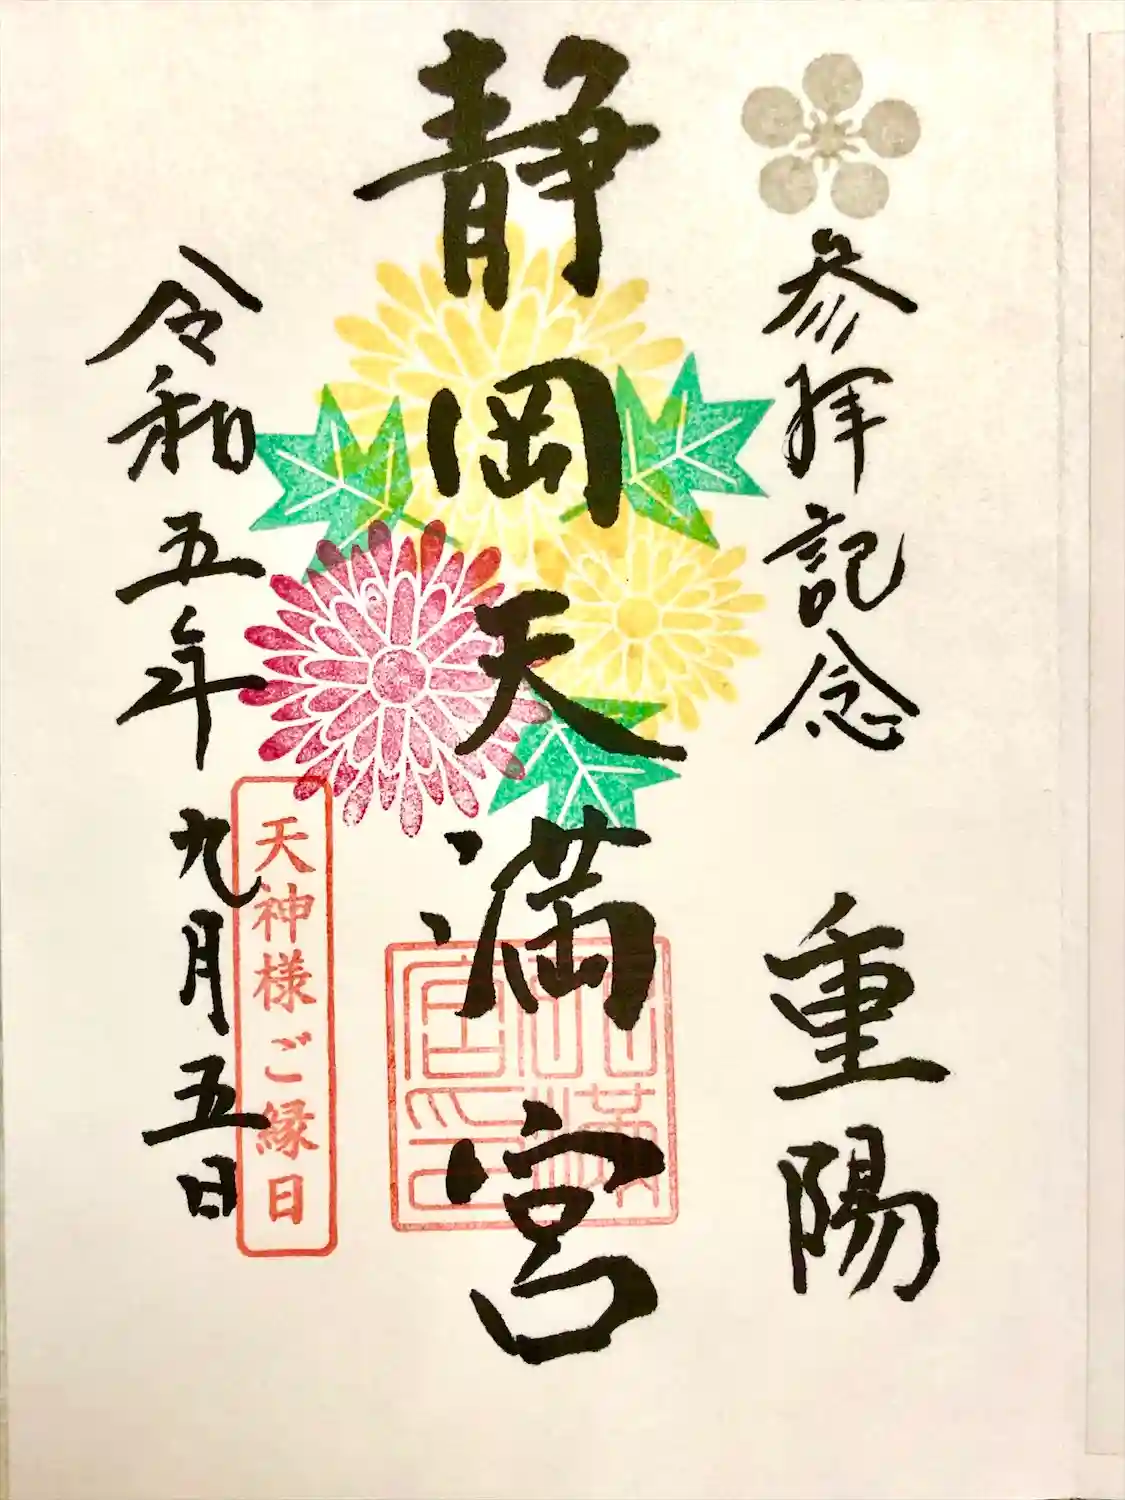 参拝記念 重陽
静岡天満宮
天満宮印
天神様ご縁日
令和五年九月五日